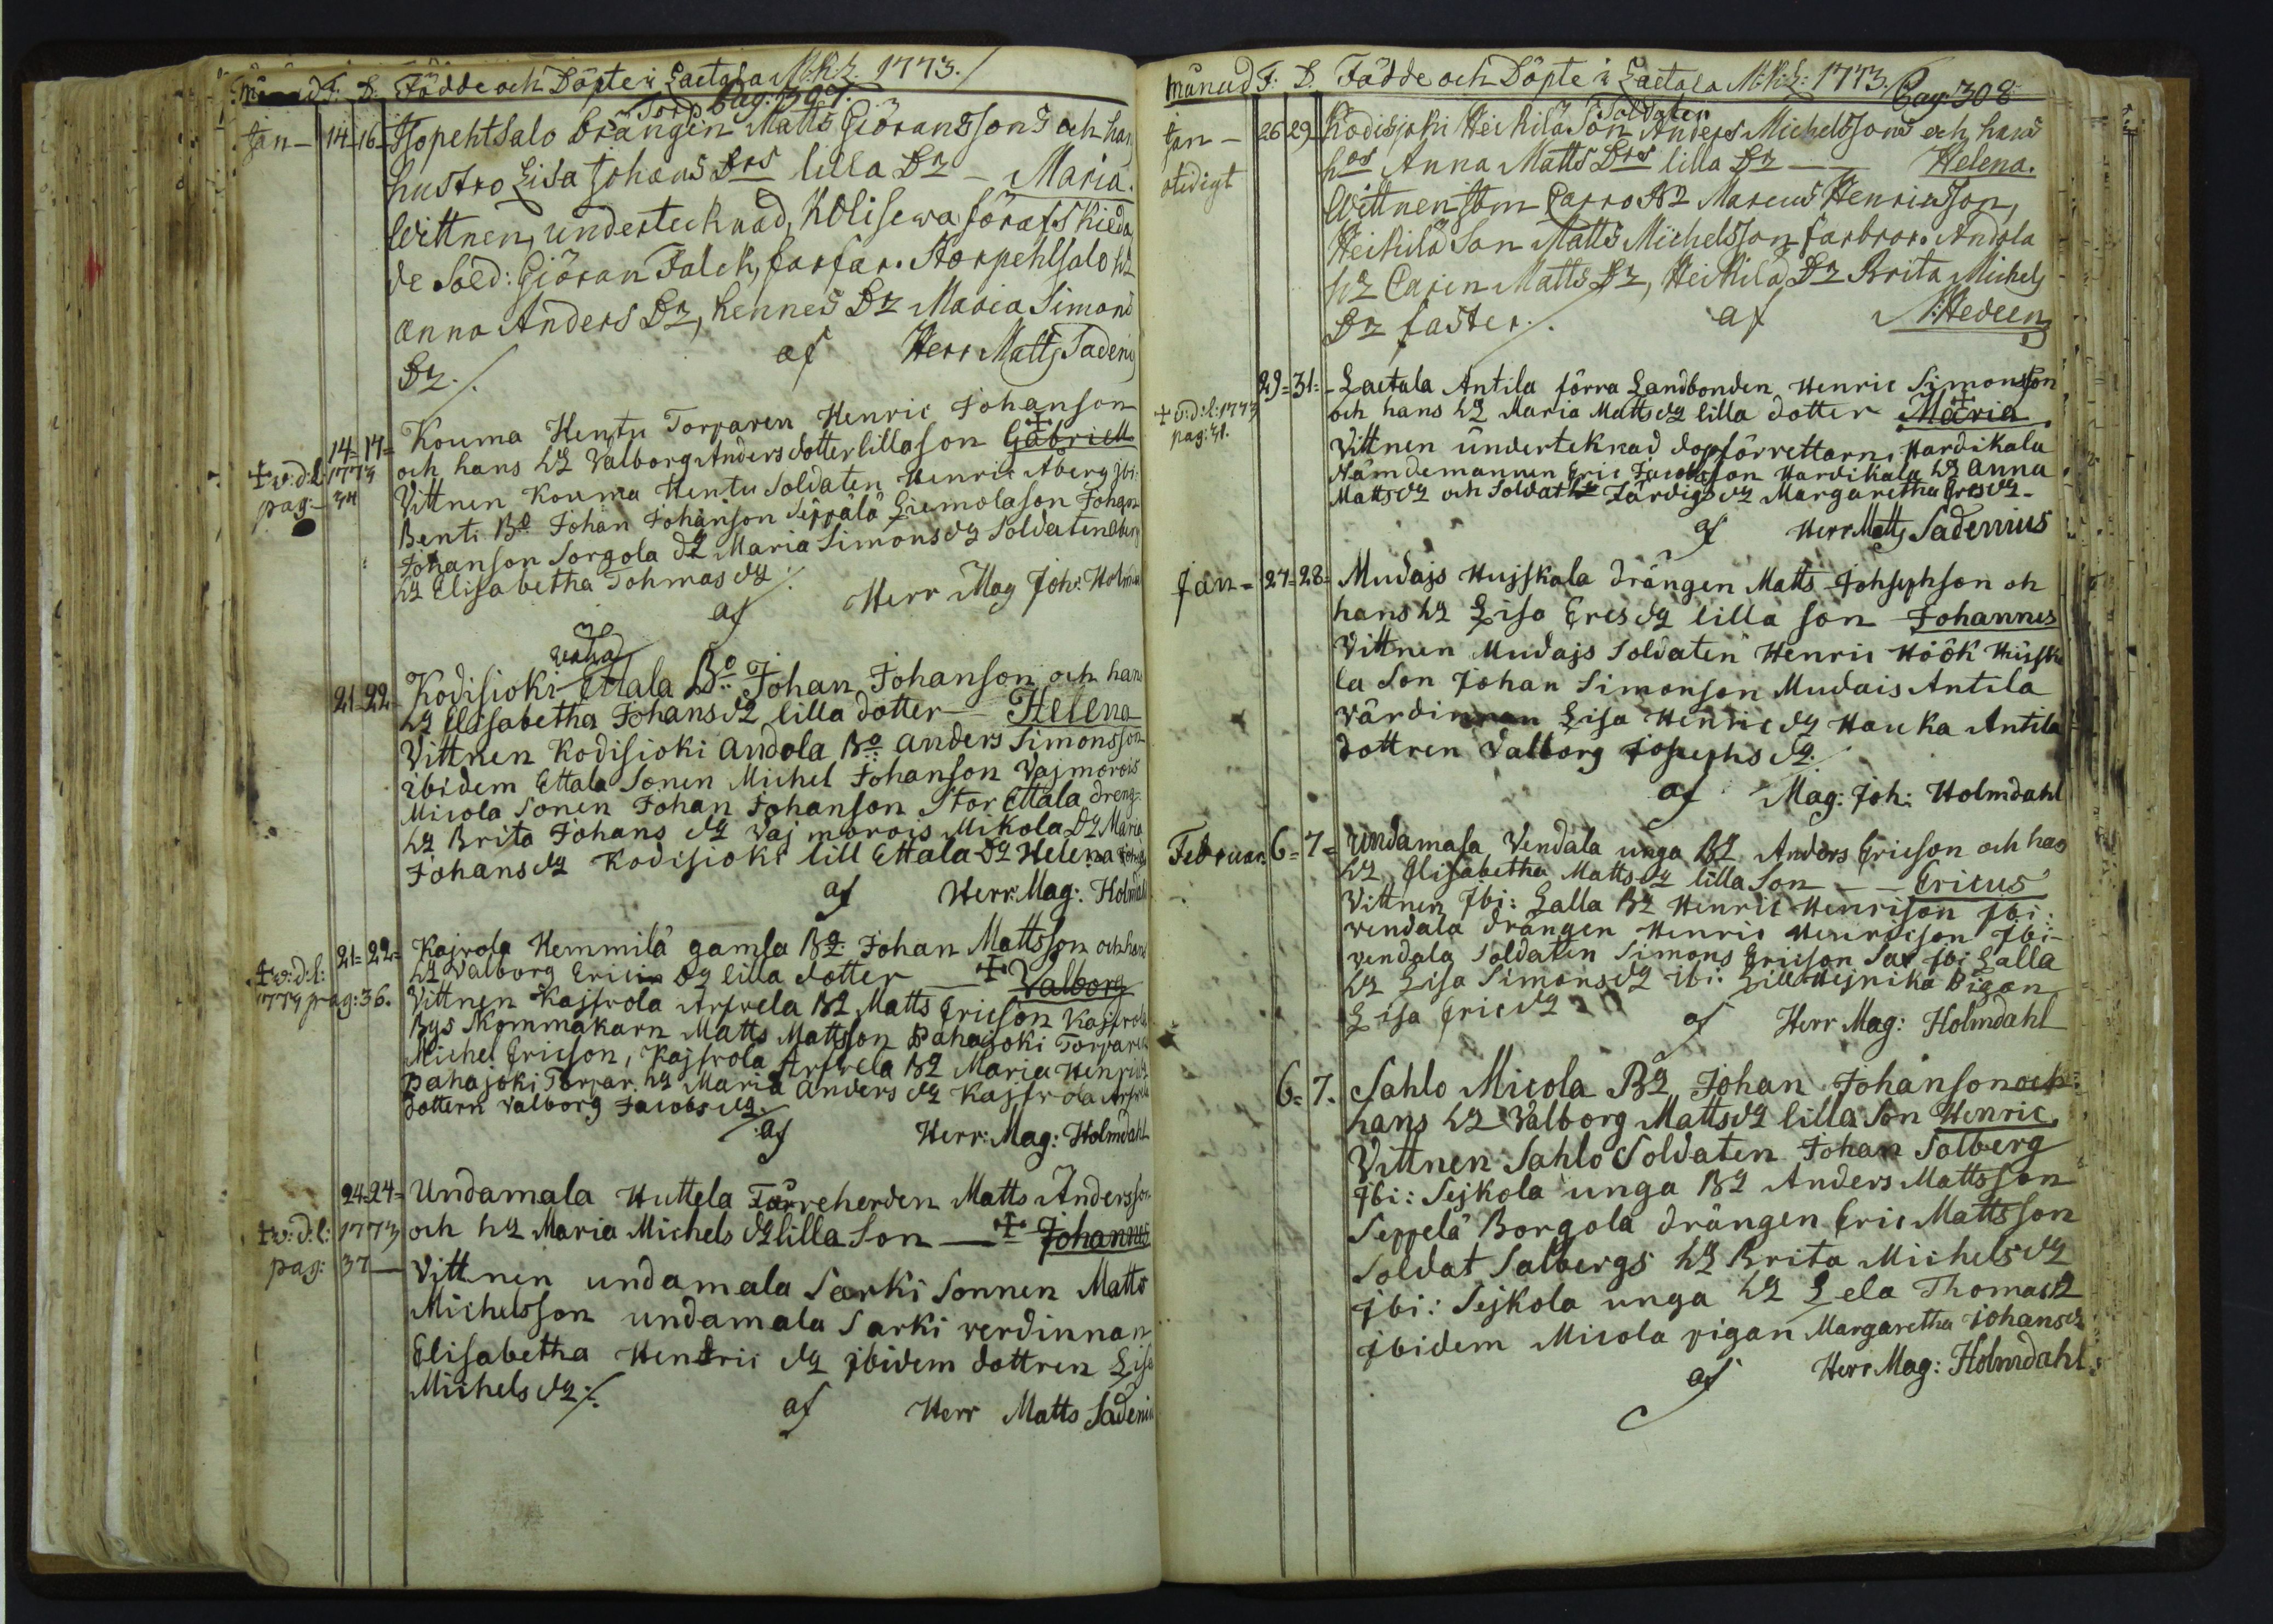 Månad F. D. Födde och Döpte i Laetala M:K:L: 1773.
Pag: 307.
Torp
Jan- 14- 16- Isopehtsalo Drängen Matts Giöransson's och hans
hustro Lisa Johans Drs lilla Dr - Maria.
Wittnen, undertecknad, afskieda
de Sold: Giöran Falck, farfar. Storpehtsalo hr
Anna Anders Dr, hennes Dr Maria Simons
Dr./. af Herr Matts Sadeni
14= 17= Kouma Hentu Torparen Henric Johanson
och hans hr Valborg Andersdotter lilla son + Gabriell
+ v:d:l: 1773
pag:- 34
Vittnen Kouma Hentu Soldaten Henric Åberg jbi:
Benti Bo Johan Johanson Seppälä Liemola son Johan
Johanson Sorgola dr Maria Simons dr Soldaten Åberg
hr Elisabetha Tohmas dr /.
af Herr Mag Joh: Holmdahl
21- 22- Kodisioki Ettala Bo: Johan Johanson och hans
hr Elisabetha Johans dr lilla dotter - Helena
Vittnen Kodisioki Andola Bo: Anders Simonsson
ibidem Ettala Sonen Michel Johanson Vajmorois
Micola Sonen Johan Johanson Stor Ettala dreng=
hr Brita Johans dr Vajmorois Mikola Dr Maria
Johans dr Kodisioki lill Ettala Dr Helena
af Herr: Mag: Holmdahl
21= 22= Kajvola Hemmilä gamla Br: Johan Mattsson och hans
hr Valborg Erici Dr lilla dotter - + Valborg
+ v:d:l:
1779 pag:36.
Vittnen Kajvola Br Matts Ericson
Bys Skommakarn Matts Mattsson Pahajoki Torparen
Michel Ericson, Br Maria Henrics
Pahajoki Torpar. hr Maria Anders dr
dottern Valborg Jacobs dr.
af Herr: Mag: Holmdahl
24=24= Undamala Huttela Fårreherden Matts Andersson
och hr Maria Michels dr lilla Son — + Johannes
+ v:d:l: 1773
pag: 37—
Vittnen undamala Sarki Sonnen Matts
Michelsson undamala Sarki verdinnan
Elisabetha Hendric dr jbidem dottren Lisa
Michels dr:/.
af Herr Matts Sadeniu
Månad F. D. Födde och Döpte i Laetala M:K:L: 1773. Pag: 308
Soldaten
Jan - 26 29 Kodisjoki Heikilä Son Anders Michelssons och hans
hos Anna Matts Drs lilla Dr — Helena.
otidigt
Wittnen Br Marcus Henricsson,
Heikilä Son Matts Michelsson farbror. Andola
hr Carin Matts Dr, Heikilä Dr Brita Michels
Dr faster./. af N:Hedeen
29= 31= - Laetala Antila förra Landbonden Henric Simonsson
och hans hr Maria Matts dr lilla dotter + Maria
+ v:d:l:1773
pag: 31.
Vittnen underteknad dopförrettarn, Hardikala
Nämdemannen Eric Jacobsson Hardikala hr Anna
Matts dr och Soldat Färdigs dr Margaretha Ers dr-
af Herr Matts Sadenius
Jan= 27= 28= Mudajs Hujskala drängen Matts Johsephson oh
hans hr Lisa Ers dr lilla son Johannes
Vittnen Mudajs Soldaten Henric Höök
la Son Johan Simonson Mudais Antila
värdinnan Lisa Henric dr Hauka Antila
dottren Valborg Josephs dr.
af Mag: Joh: Holmdahl
Februar. 6= 7= Undamala Vendala unga Br Anders Ericson och has
hr Elisabetha Matts dr lilla Son - - Ericus
Vittnen Jbi: Lalla Br Henric Henrison jbi:
vendala drängen Henric Henricson Jbi-
vendala Soldaten Simons Ericson Sax jbi: Lalla
hr Lisa Simons dr ibi: Lill Hejnika Pigan
Lisa Eric dr
af Herr Mag: Holmdahl
6= 7. Sahlo Micola Br Johan Johanson och
hans hr Valborg Matts dr lilla Son Henric,
Vittnen Sahlo Soldaten Johan Solberg
jbi: Sejkola unga Br Anders Mattsson
Seppelä Borgola drängen Eric Mattsson
Soldat Salbergs hr Brita Michels dr
jbi: Sejkola unga hr Lela Thomas dr
jbidem Micola pigan Margaretha Johans dr
af Herr Mag: Holmdahl.